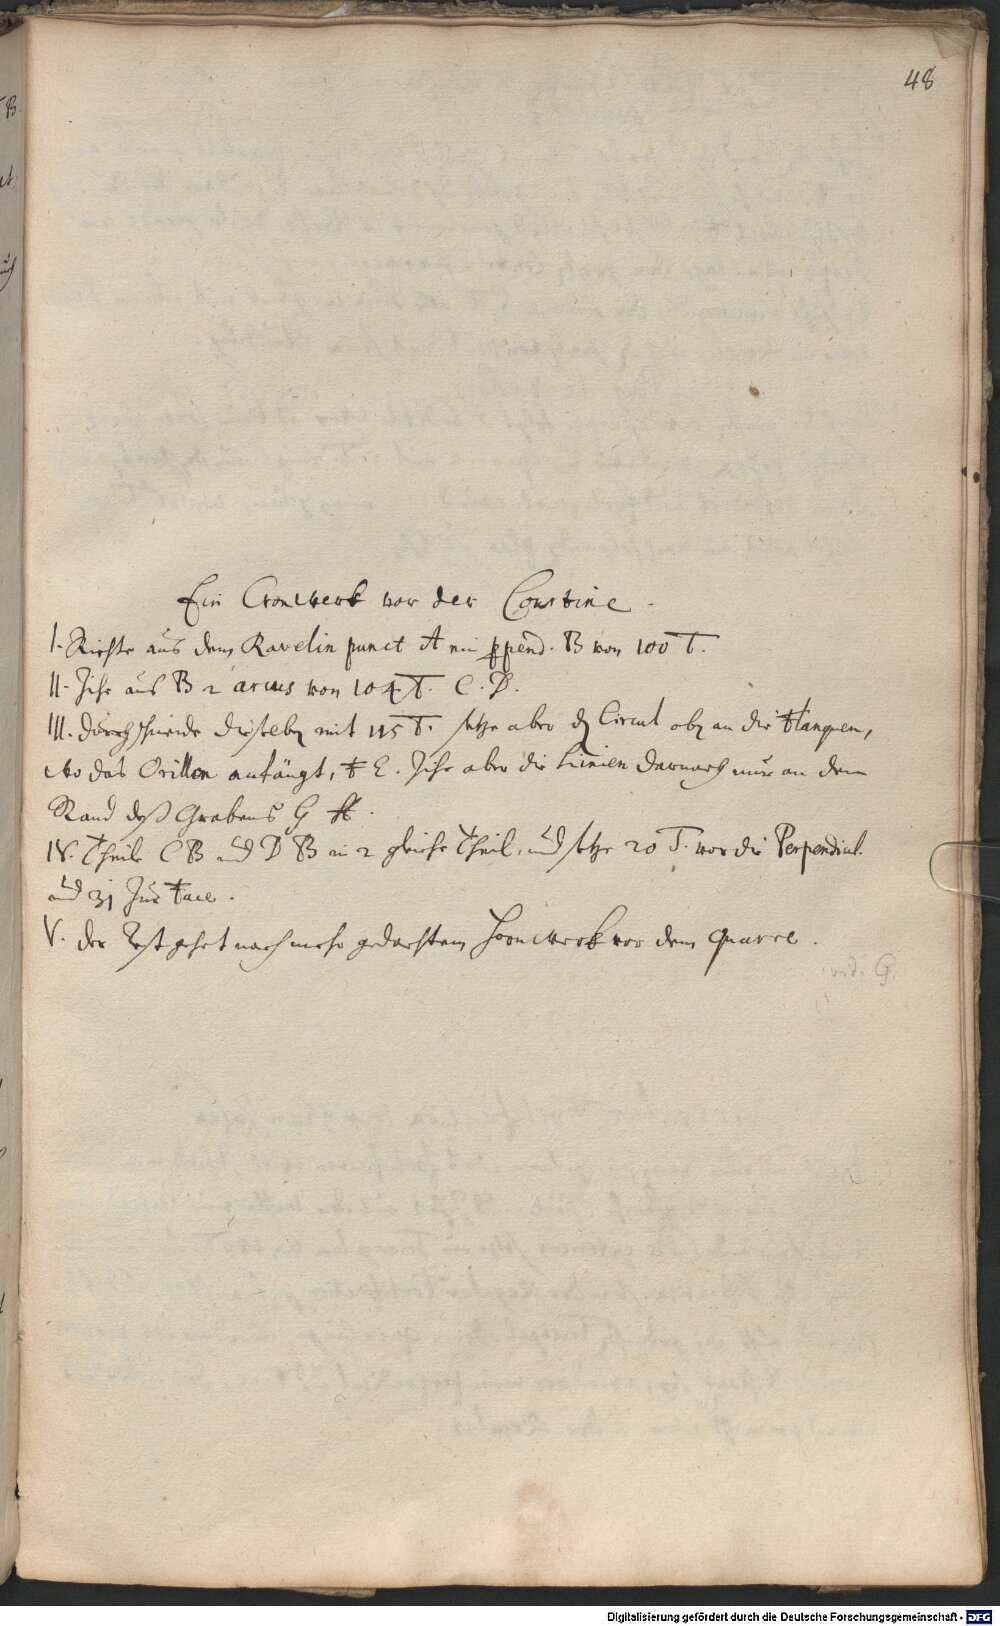 48
Ein Cronwerk vor der Courtine.
I. Richte aus dem Ravelin punct A ein ppend. B von 100 T.
II. Zihe aus B 2 arcus von 104 T. C. D.
III. durchschneide dieselben mit 115 T. setze aber den Circul oben an die Flanquen,
wo das Orillon anfängt, F E. Zihe aber die Linien darnach nur an dem
Rand deß Grabens G H.
IV. Theile C B und D B in 2 gleiche Theil, und setze 20 T. vor die Perpendicul.
und 31 zur Face.
V. der Rest gehet nach mehr gedachtem Hornwerk vor dem quarré.
vid. G.
Digitalisierung gefördert durch die Deutsche Forschungsgemeinschaft - DFG